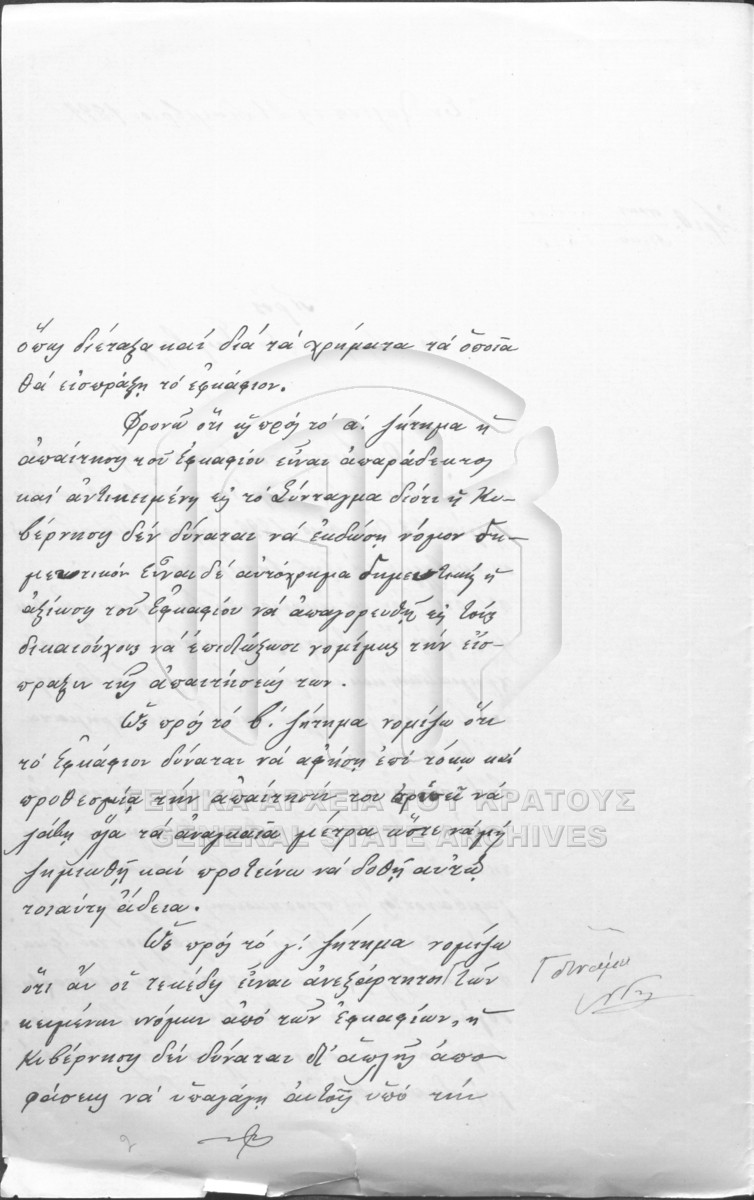 ὅπως διέταξα καί διά τά χρήματα τά ὁποῖα
θά εἰσπράξῃ τό ἐφκάφιον.
Φρονῶ ὅτι ὡς πρός τό α΄. ζήτημα ἡ
ἀπαίτησις τοῦ Ἐφκαφίου εἶναι ἀπαράδεκτος
καί ἀντικειμένη εἰς τό Σύνταγμα διότι ἡ Κυ-
βέρνησις δέν δύναται νά ἐκδώσῃ νόμον δη-
μευτικόν εἶναι δέ αὐτόχρημα δημευτική ἡ
ἀξίωσις τοῦ Ἐφκαφίου νά ἀπαγορευθῇ εἰς τούς
δικαιούχους νά ἐπιδιώξωσι νομίμως τήν εἴσ-
πραξιν τῆς ἀπαιτήσεώς των.
Ὡς πρός τό β΄. ζήτημα νομίζω ὅτι
τό Ἐφκάφιον δύναται νά ἀφήσῃ ἐπί τόκῳ καί
προθεσμίᾳ τήν ἀπαίτησίν του πρέπει νά
λάβῃ ὅλα τά ἀναγκαῖα μέτρα ὥστε νά μή
ζημιωθῇ καί προτείνω νά δοθῇ αὐτῷ
τοιαύτη ἄδεια.
Ὡς πρός τό γ΄. ζήτημα νομίζω
ὅτι ἄν οἱ τεκέδες εἶναι ἀνεξάρτητοι
κειμένων νόμων ἀπό τῶν Ἐφκαφίων, ἡ
Κυβέρνησις δέν δύναται δι' ἁπλῆς ἀπο-
φάσεως νά ὑπαγάγῃ αὐτούς ὑπό τήν
ΓΕΝΙΚΑ ΑΡΧΕΙΑ ΤΟΥ ΚΡΑΤΟΥΣ
GENERAL STATE ARCHIVES
2